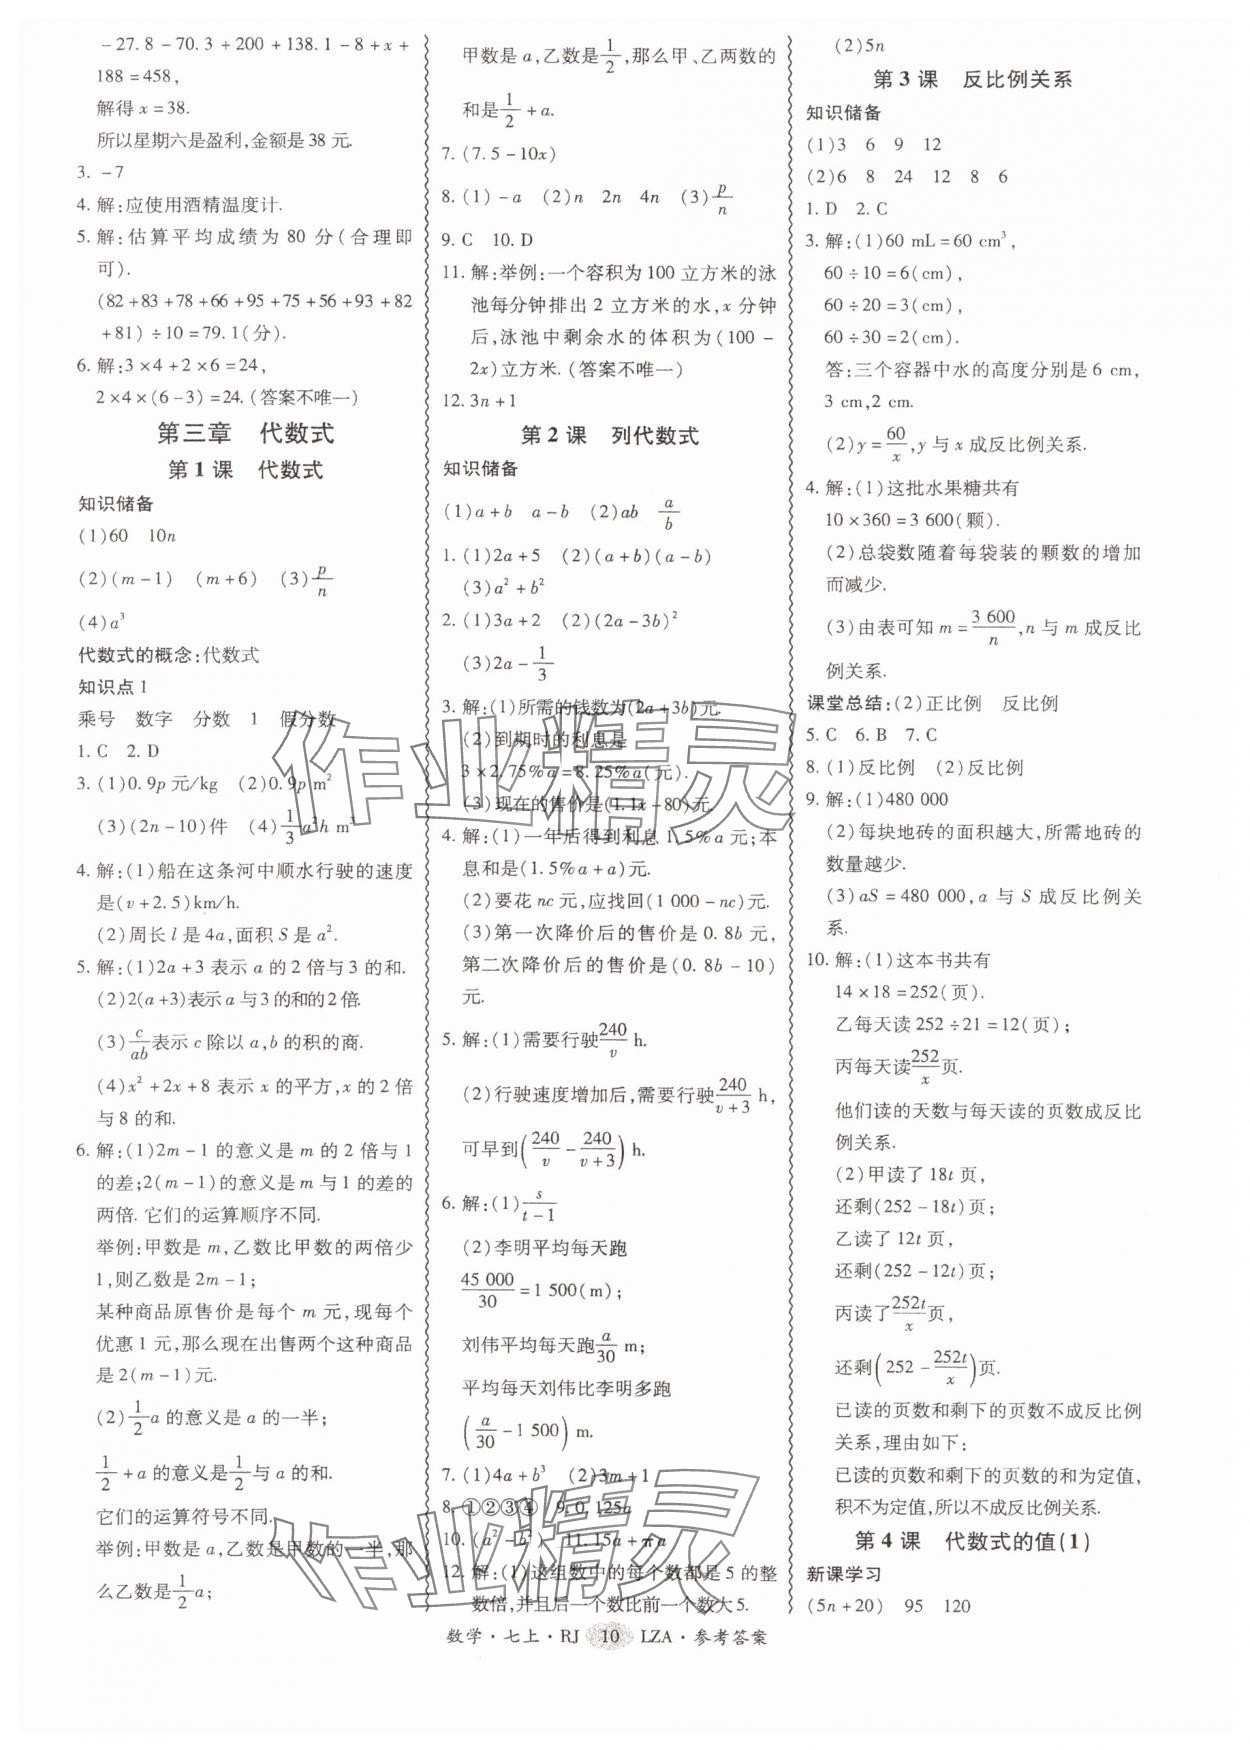 -27.8-70.3+200+138.1-8+x+
188=458,
解得x=38.
所以星期六是盈利,金额是38元.
3. -7
4. 解:应使用酒精温度计.
5. 解:估算平均成绩为80分(合理即
可).
(82+83+78+66+95+75+56+93+82
+81)÷10=79.1(分).
6. 解:3×4+2×6=24,
2×4×(6-3)=24.(答案不唯一)
第三章 代数式
第1课 代数式
知识储备
(1)60 10n
(2)(m-1) (m+6) (3)p/n
(4)a³
代数式的概念:代数式
知识点1
乘号 数字 分数 1 假分数
1. C 2. D
3. (1)0.9p元/kg (2)0.9p m²
(3)(2n-10)件 (4)1/3 a²h m³
4. 解:(1)船在这条河中顺水行驶的速度
是(v+2.5)km/h.
(2)周长l是4a,面积S是a².
5. 解:(1)2a+3表示a的2倍与3的和.
(2)2(a+3)表示a与3的和的2倍.
(3)c/ab表示c除以a,b的积的商.
(4)x²+2x+8表示x的平方,x的2倍
与8的和.
6. 解:(1)2m-1的意义是m的2倍与1
的差;2(m-1)的意义是m与1的差的
两倍. 它们的运算顺序不同.
举例:甲数是m,乙数比甲数的两倍少
1,则乙数是2m-1;
某种商品原售价是每个m元,现每个
优惠1元,那么现在出售两个这种商品
是2(m-1)元.
(2)1/2 a的意义是a的一半;
1/2+a的意义是1/2与a的和.
它们的运算符号不同.
举例:甲数是a,乙数是甲数的一半,那
么乙数是1/2 a;
甲数是a,乙数是1/2,那么甲、乙两数的
和是1/2+a.
7. (7.5-10x)
8. (1)-a (2)n 2n 4n (3)p/n
9. C 10. D
11. 解:举例:一个容积为100立方米的泳
池每分钟排出2立方米的水,x分钟
后,泳池中剩余水的体积为(100-
2x)立方米.(答案不唯一)
12. 3n+1
第2课 列代数式
知识储备
(1)a+b a-b (2)ab a/b
1. (1)2a+5 (2)(a+b)(a-b)
(3)a²+b²
2. (1)3a+2 (2)(2a-3b)²
(3)2a-1/3
3. 解:(1)所需的钱数为(2a+3b)元.
(2)到期时的利息是
3×2.75%a=8.25%a(元).
(3)现在的售价是(1.1x-80)元.
4. 解:(1)一年后得到利息1.5%a元;本
息和是(1.5%a+a)元.
(2)要花nc元,应找回(1 000-nc)元.
(3)第一次降价后的售价是0.8b元,
第二次降价后的售价是(0.8b-10)
元.
5. 解:(1)需要行驶240/v h.
(2)行驶速度增加后,需要行驶240/(v+3) h,
可早到(240/v-240/(v+3)) h.
6. 解:(1)s/(t-1)
(2)李明平均每天跑
45 000/30=1 500(m);
刘伟平均每天跑a/30 m;
平均每天刘伟比李明多跑
(a/30-1 500) m.
7. (1)4a+b³ (2)3m+1
8. ①②③④ 9. 0.125a
10. (a²-b²) 11. 15a+πa
12. 解:(1)这组数中的每个数都是5的整
数倍,并且后一个数比前一个数大5.
(2)5n
第3课 反比例关系
知识储备
(1)3 6 9 12
(2)6 8 24 12 8 6
1. D 2. C
3. 解:(1)60 mL=60 cm³,
60÷10=6(cm),
60÷20=3(cm),
60÷30=2(cm).
答:三个容器中水的高度分别是6 cm,
3 cm,2 cm.
(2)y=60/x,y与x成反比例关系.
4. 解:(1)这批水果糖共有
10×360=3 600(颗).
(2)总袋数随着每袋装的颗数的增加
而减少.
(3)由表可知m=3 600/n,n与m成反比
例关系.
课堂总结:(2)正比例 反比例
5. C 6. B 7. C
8. (1)反比例 (2)反比例
9. 解:(1)480 000
(2)每块地砖的面积越大,所需地砖的
数量越少.
(3)aS=480 000,a与S成反比例关
系.
10. 解:(1)这本书共有
14×18=252(页).
乙每天读252÷21=12(页);
丙每天读252/x页.
他们读的天数与每天读的页数成反比
例关系.
(2)甲读了18t页,
还剩(252-18t)页;
乙读了12t页,
还剩(252-12t)页;
丙读了252t/x页,
还剩(252-252t/x)页.
已读的页数和剩下的页数不成反比例
关系,理由如下:
已读的页数和剩下的页数的和为定值,
积不为定值,所以不成反比例关系.
第4课 代数式的值(1)
新课学习
(5n+20) 95 120
数学·七上·RJ 10 LZA·参考答案
作业精灵
作业精灵